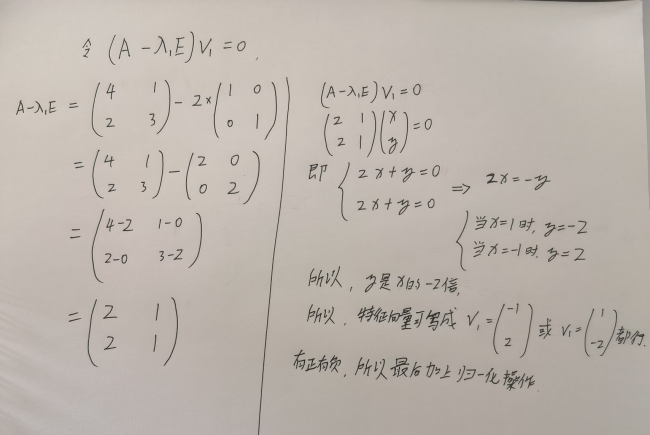 令 (A-λ₁E)V₁=0.
A-λ₁E = (4 1
2 3) - 2*(1 0
0 1)
= (4 1
2 3) - (2 0
0 2)
= (4-2 1-0
2-0 3-2)
= (2 1
2 1)
(A-λ₁E)V₁=0
(2 1
2 1)(x
y)=0
即 { 2x+y=0
2x+y=0 ⇒ 2x=-y
{ 当x=1时, y=-2
当x=-1时. y=2
所以, y是x的-2倍,
所以, 特征向量可写成 V₁=(-1
2) 或 V₁=(1
-2)都行.
有正有负, 所以最后加上归一化操作.